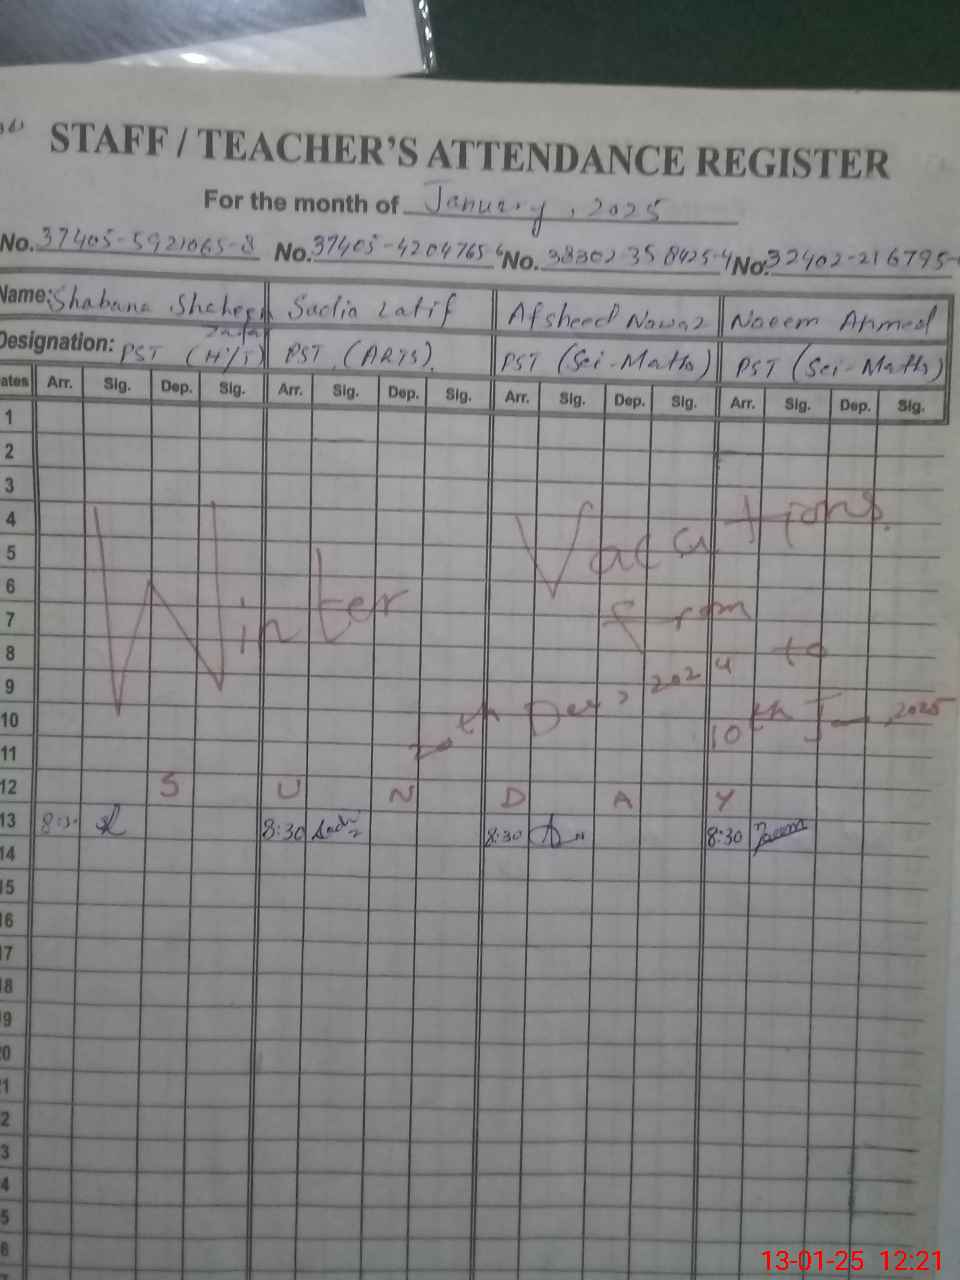 STAFF / TEACHER'S ATTENDANCE REGISTER
For the month of January, 2025
No. 37405-5921065-8 No. 37405-4204765 No. 38302-358425-4 No. 32402-216795-
Name: Shabana Shaheen Zada Sadia Latif Afsheed Nawaz Naeem Ahmed
Designation: PST (H/T) PST (ARTS). PST (Sci-Math) PST (Sci-Math)
ates Arr. Sig. Dep. Sig. Arr. Sig. Dep. Sig. Arr. Sig. Dep. Sig. Arr. Sig. Dep. Sig.
1
2
3
4
5
6
7
8
9
10
11
12
13
14
15
16
17
18
19
20
1
2
3
4
5
6
Winter Vacations
from
to
20th Dec, 2024 10th J 2025
S U N D A Y
8:30 8:30 8:30 8:30 Naeem
13-01-25 12:21